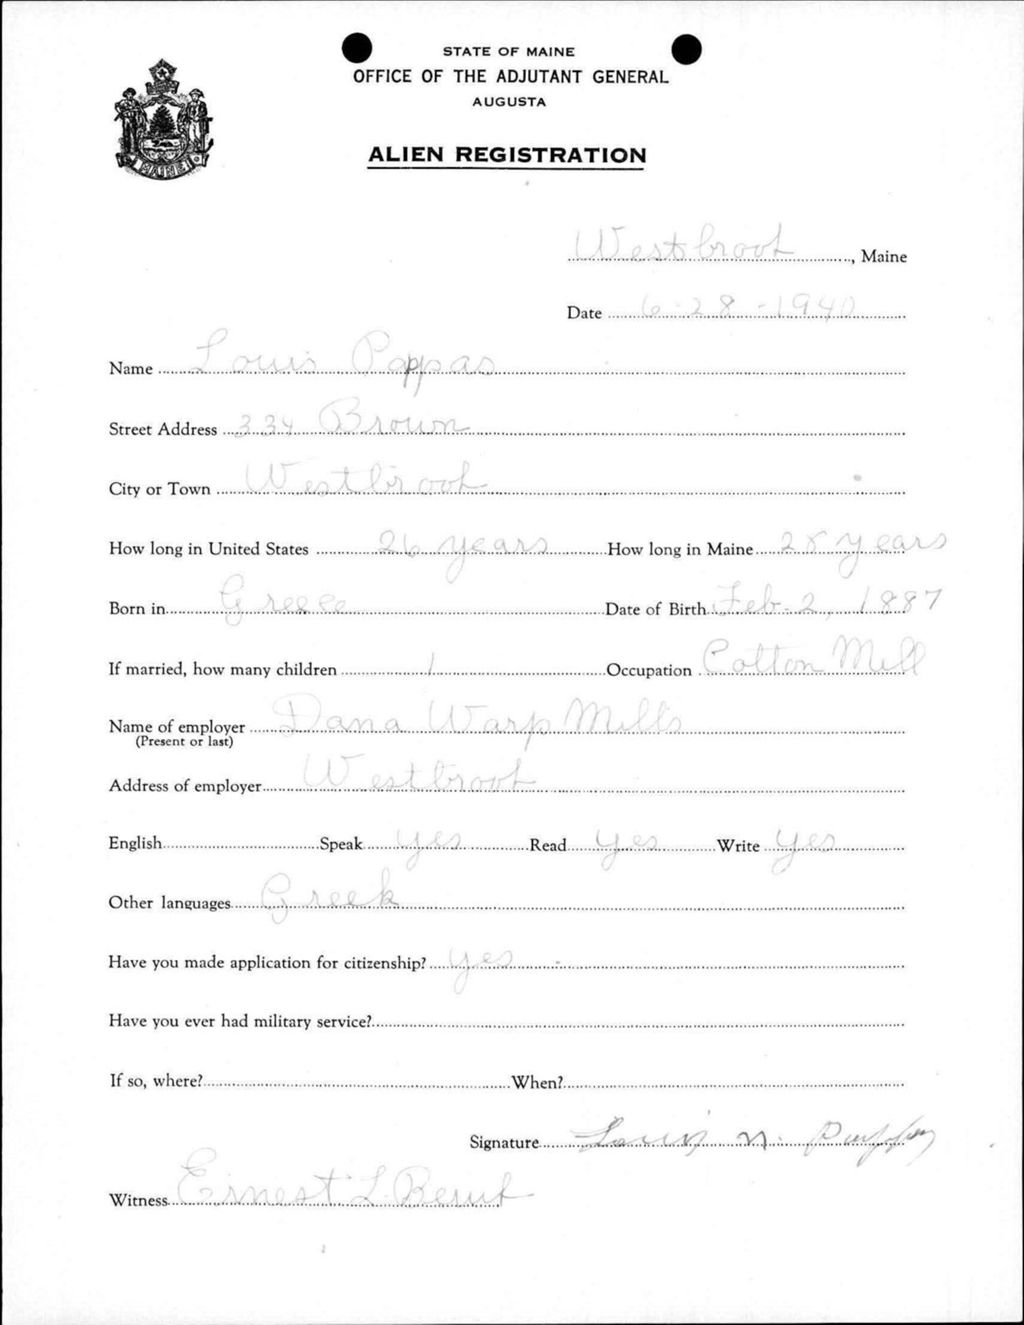 STATE OF MAINE
OFFICE OF THE ADJUTANT GENERAL
AUGUSTA
ALIEN REGISTRATION
MAINE
Westbrook, Maine
Date 6-28-1940
Name Louis Pappas
Street Address 334 Brown
City or Town Westbrook
How long in United States 26 years How long in Maine 28 years
Born in Greece Date of Birth Feb. 2, 1887
If married, how many children 1 Occupation Cotton Mill
Name of employer Dana Warp Mills
(Present or last)
Address of employer Westbrook
English Speak yes Read yes Write yes
Other languages Greek
Have you made application for citizenship? yes
Have you ever had military service?
If so, where? When?
Signature Louis N. Pappas
Witness Ernest L.